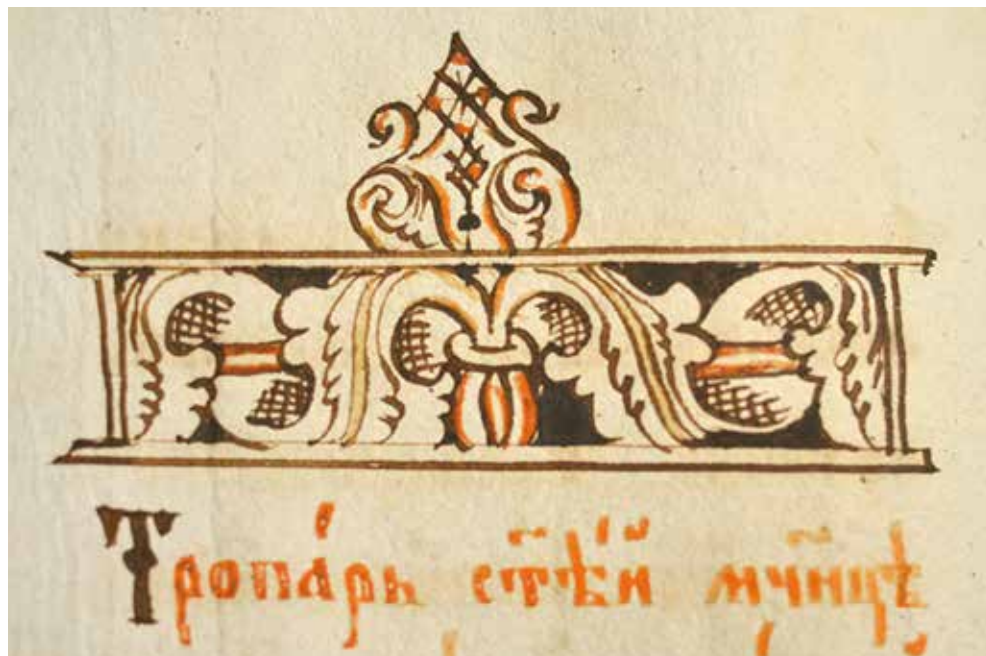 Тропа́рь ст҃ѣ́й мч҃нцѣ